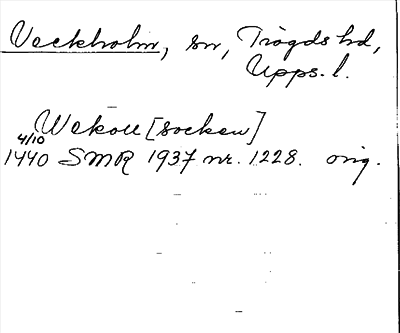 Veckholm, sn, Trögds hd,
Upps. l.
Wekoll [socken]
4/10
1440 SMR 1937 nr. 1228. orig.